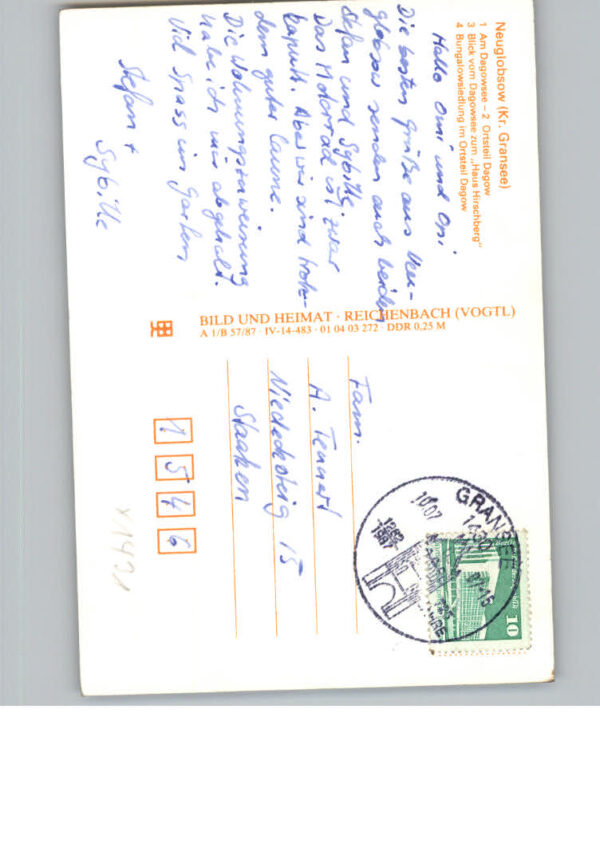 Neuglobsow (Kr. Gransee)
1 Am Dagowsee – 2 Ortsteil Dagow
3 Blick vom Dagowsee zum „Haus Hirschberg"
4 Bungalowsiedlung im Ortsteil Dagow
Hallo Omi und Opi
Die besten Grüße aus Neu-
globsow senden euch beiden
Stefan und Sybille
Das Motorrad ist zwar
kaputt. Aber wir sind trotz-
dem guter Laune.
Die Wohnungszuweisung
habe ich mir abgeholt.
Viel Spass im Garten
Stefan +
Sybille
BILD UND HEIMAT · REICHENBACH (VOGTL)
A 1/B 57/87 · IV-14-483 · 01 04 03 272 · DDR 0,25 M
Fam.
A. Tennert
15
Staaken
1546
GRANSEE
1430
10
V1421